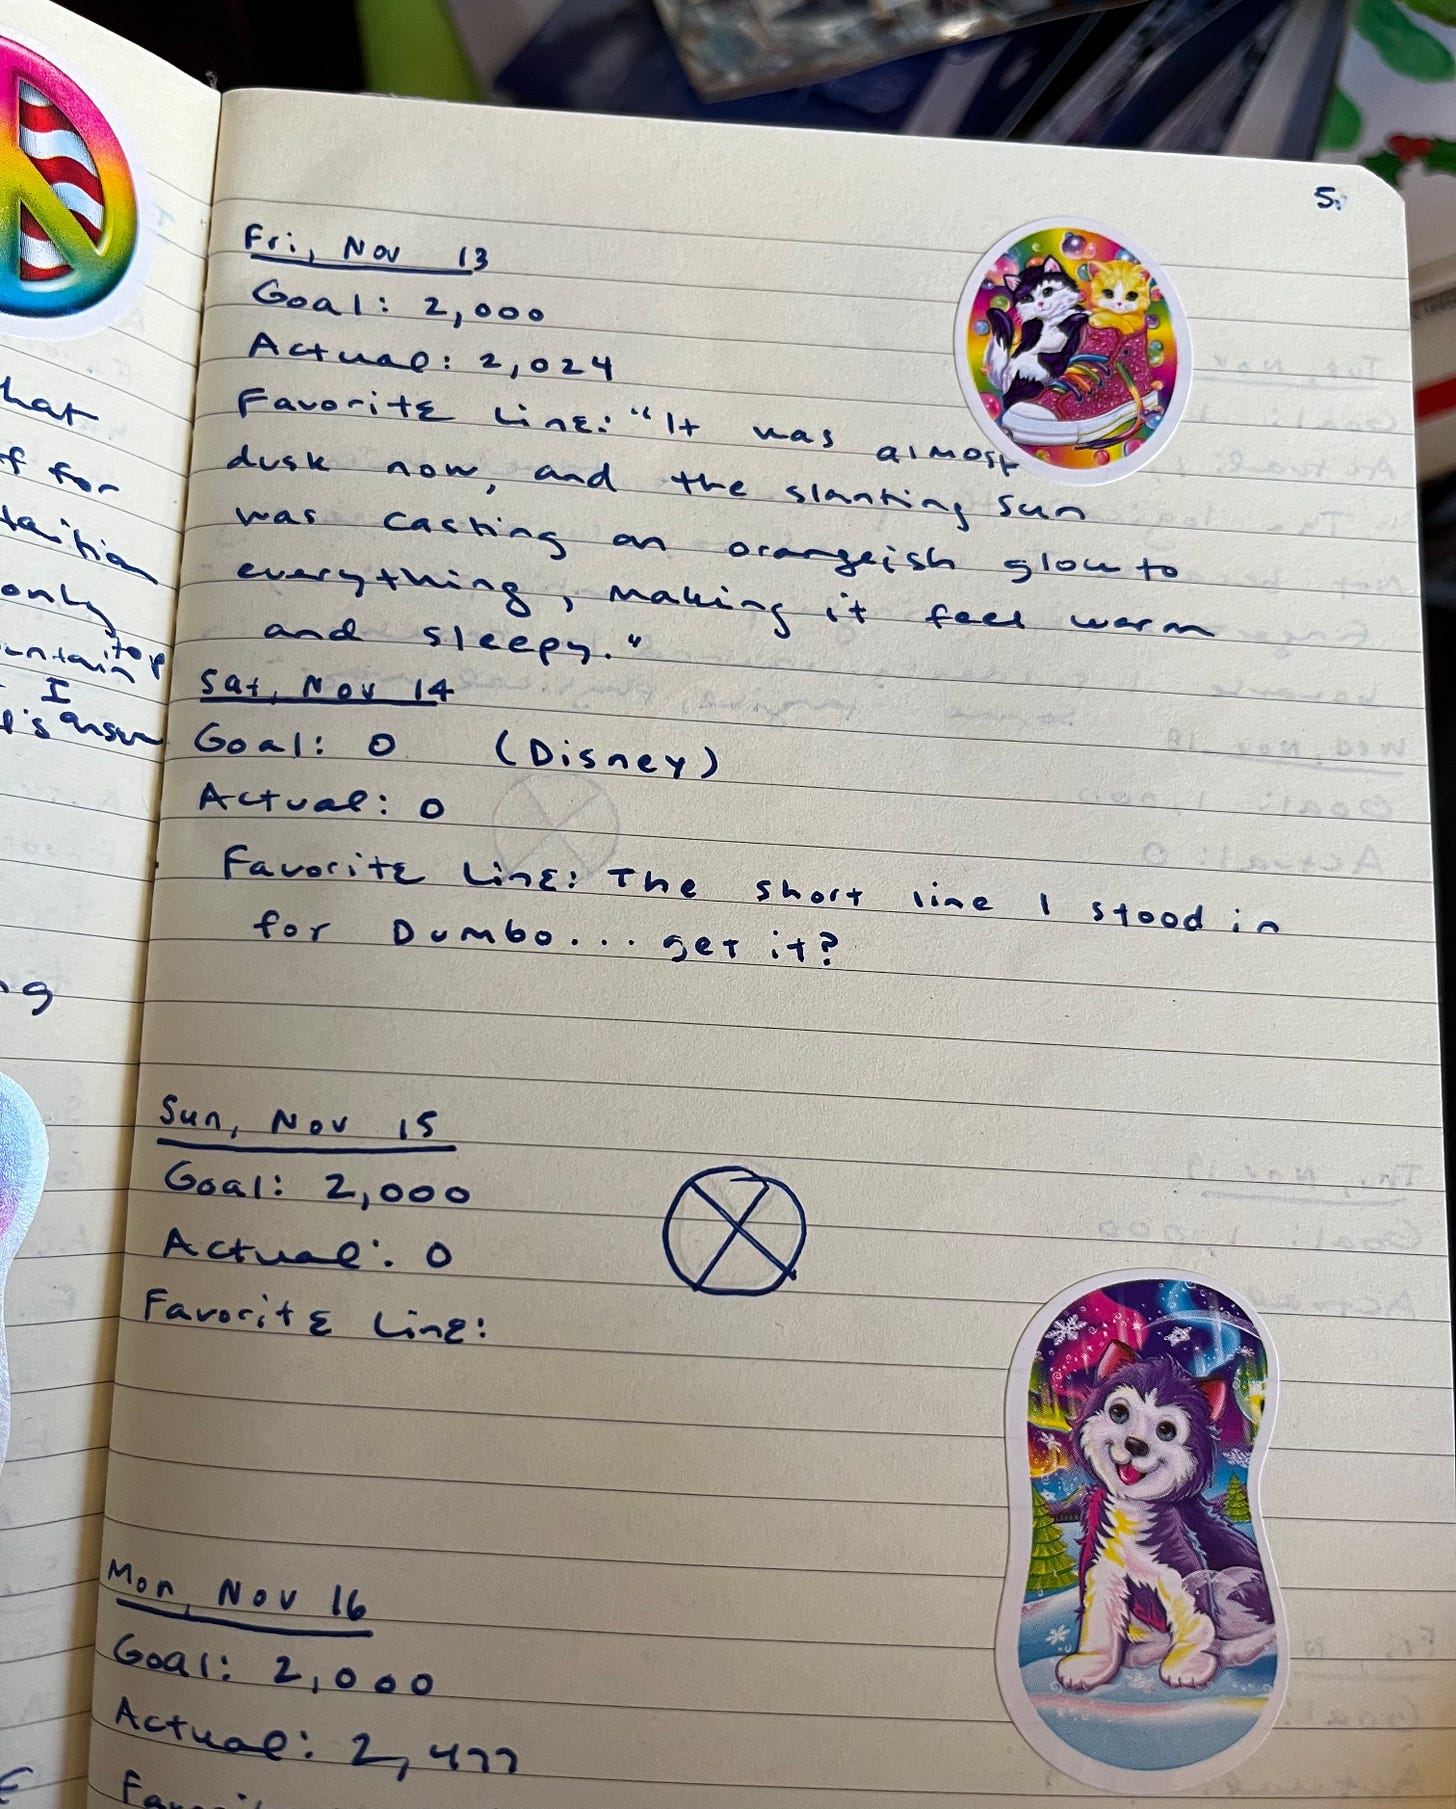 hat
f for
only
top
I
5.
Fri, Nov 13
Goal: 2,000
Actual: 2,024
Favorite Line: "It was almost
dusk now, and the slanting sun
was casting an orangeish glow to
everything, making it feel warm
and sleepy."
Sat, Nov 14
Goal: 0 (Disney)
Actual: 0
Favorite Line: The short line I stood in
for Dumbo... get it?
Sun, Nov 15
Goal: 2,000
Actual: 0
Favorite Line:
Mon, Nov 16
Goal: 2,000
Actual: 2,477